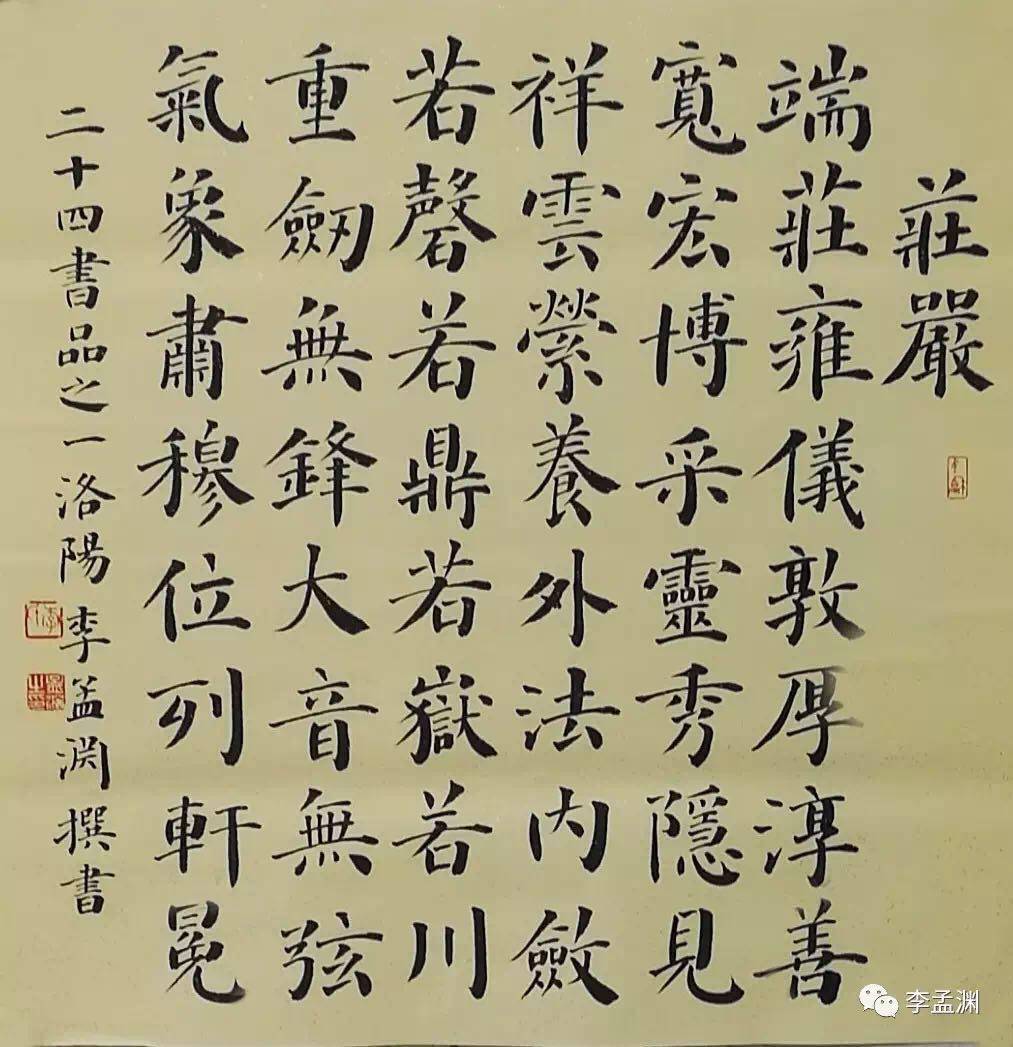 莊嚴
端莊雍儀敦厚淳善
寬宏博采靈秀隱見
祥雲縈養外法内斂
若磬若鼎若嶽若川
重劒無鋒大音無弦
氣象肅穆位列軒冕
二十四書品之一洛陽李孟渊撰書
李孟渊